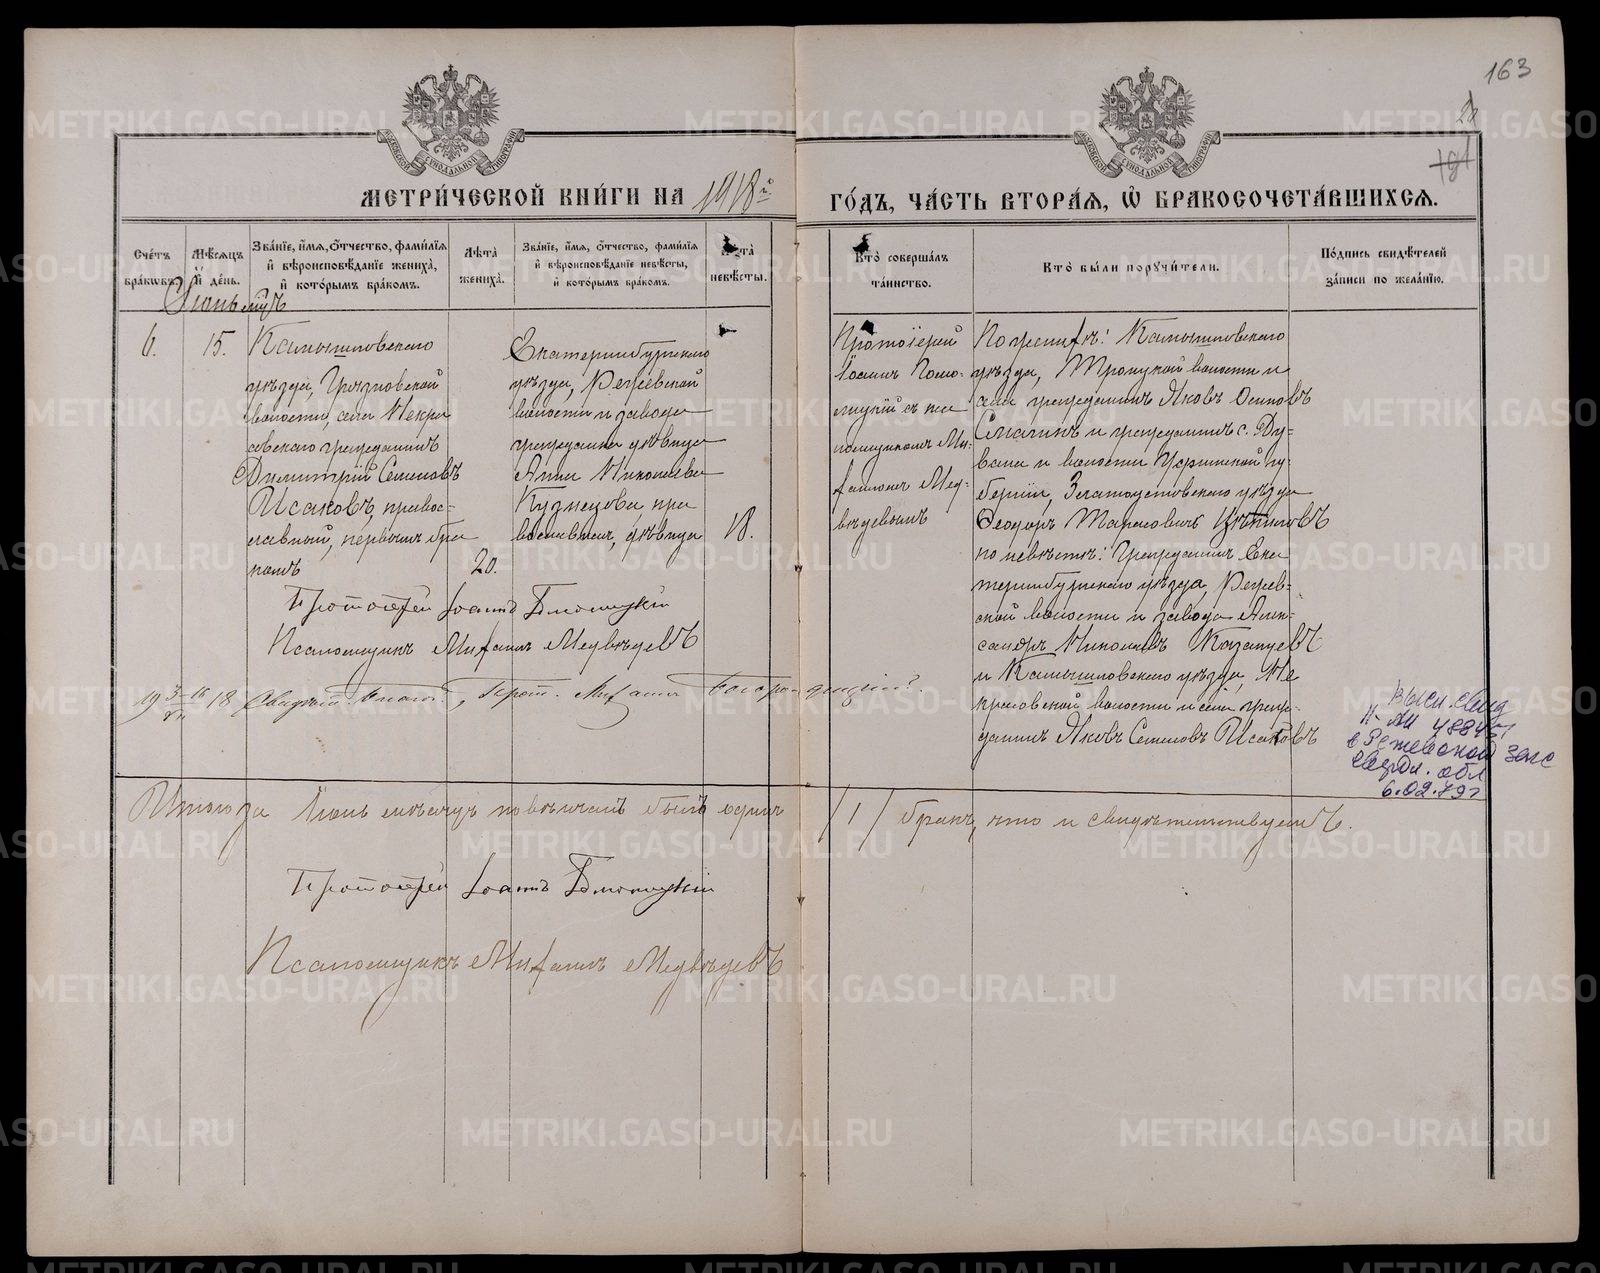 163
МЕТРИ́ЧЕСКОЙ КНИ́ГИ НА 1918й
ГО́ДЪ, ЧА́СТЬ ВТОРА́Я, Ѽ БРАКОСОЧЕТА́ВШИХСЯ.
Сче́тъ бра́ковъ.
Мѣ́сяцъ и҆ де́нь.
Зва́нїе, и҆́мя, ѻ҆́тчество, фами́лїя и҆ вѣроисповѣ́данїе жениха̀, и҆ кото́рымъ бра́комъ.
Лѣ́та жениха̀.
Зва́нїе, и҆́мя, ѻ҆́тчество, фами́лїя и҆ вѣроисповѣ́данїе невѣ́сты, и҆ кото́рымъ бра́комъ.
Лѣ́та невѣ́сты.
Кто̀ соверша́лъ та́инство.
Кто̀ бы́ли поручи́тели.
По́дпись свидѣ́телей за́писи по жела́нїю.
Іюнь мц҃ъ
6.
15.
Камышловскаго
уѣзда, Грязновской
волости, села Некра
совскаго гражданинъ
Димитрій Семеновъ
Исаковъ, правос-
лавный, первымъ бра
комъ
20.
Екатеринбургскаго
уѣзда, Режевской
волости и завода
гражданка дѣвица
Анна Николаева
Кузнецова, пра
вославная, дѣвица
18.
Протоіерей
Іоаннъ
съ пса
ломщикомъ Ми-
хаиломъ Мед-
вѣдевымъ
По женихѣ: Камышловскаго
уѣзда, Троицкой волости и
села гражданинъ Яковъ Осиповъ
Смагинъ и гражданинъ с. Ду-
вана и волости Уфимской гу-
берніи, Златоустовскаго уѣзда
Ѳеодоръ Тарасовичъ
по невѣстѣ: Гражданинъ Ека
теринбургскаго уѣзда, Режев-
ской волости и завода Алек-
сандръ Николаевъ Казанцевъ
и Камышловскаго уѣзда, Не
красовской волости и села граж-
данинъ Яковъ Семеновъ Исаковъ
Протоіерей Іоаннъ
Псаломщикъ Михаилъ Медвѣдевъ
18
Прот. Михаилъ
Высл. свид
в Режевской загс
Свердл. обл
6.02.79г
Итого за Іюнь мѣсяцъ повѣнчанъ былъ одинъ /1/ бракъ, что и свидѣтельствуемъ.
Протоіерей Іоаннъ
Псаломщикъ Михаилъ Медвѣдевъ
METRIKI.GASO-URAL.RU